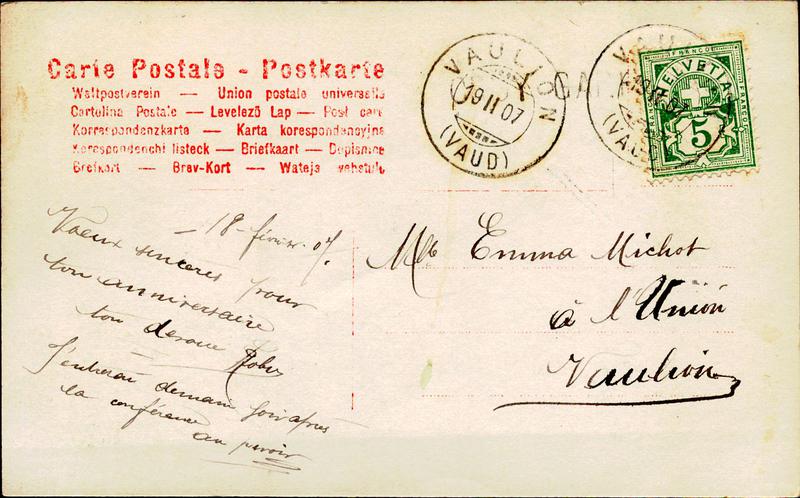 Carte Postale - Postkarte
Weltpostverein — Union postale universelle
Cartolina Postale — Levelező Lap — Post card
Korrespondenzkarte — Karta korespondencyjna
Korespondenchi listeck — Briefkaart — Dopisnice
Brefkort — Brev-Kort — Wateja
VAULION
19 II 07
(VAUD)
FRANCO
HELVETIA
5
18 févr. 07.
Voeux sincères pour
ton anniversaire
ton
demain soir après
la conférence
au revoir
Mlle Emma Michot
à l'Union
Vaulion